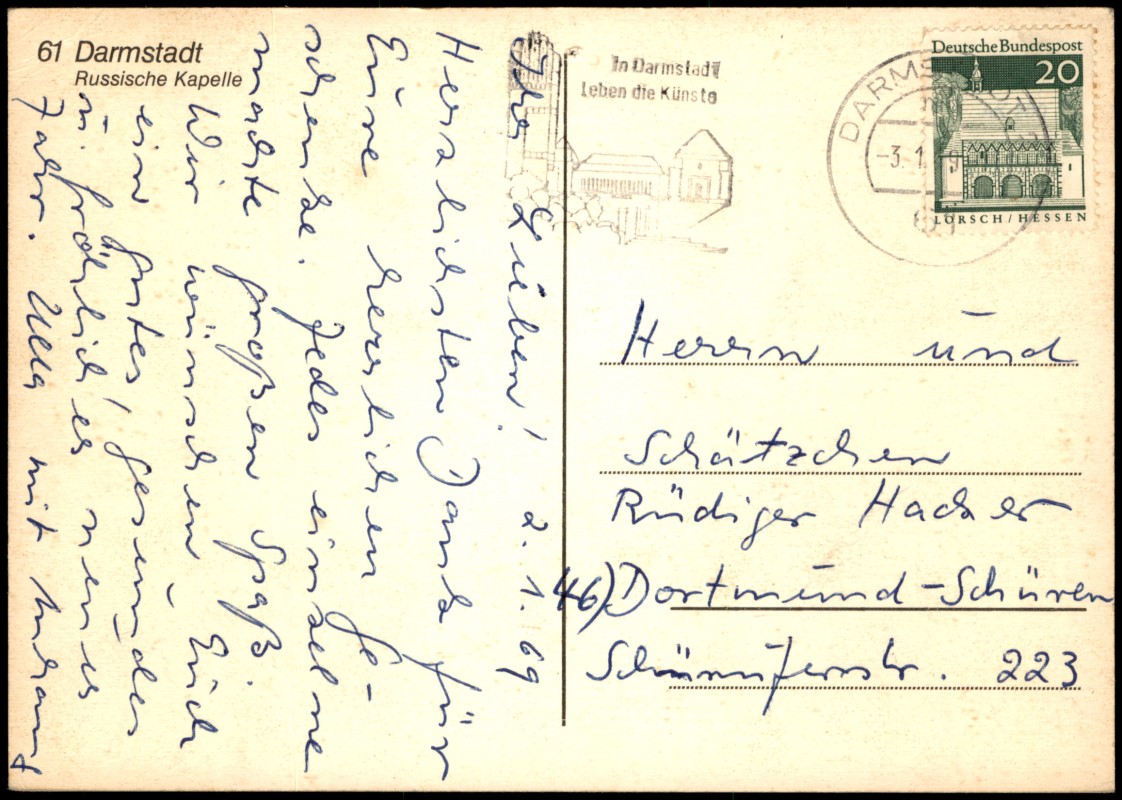 61 Darmstadt
Russische Kapelle
In Darmstadt
Leben die Künste
DARMSTADT
-3.1.
Deutsche Bundespost
20
LORSCH / HESSEN
Ihr Lieben! 2.1.69
Herzlichsten Dank für
Eure herrlichen Ge-
schenke. Jedes einzelne
machte großen Spaß.
Wir wünschen Euch
ein gutes, gesundes
u. fröhliches neues
Jahr. Ulla mit
Herrn und
Schätzchen
Rüdiger Hacker
46) Dortmund-Schüren
223